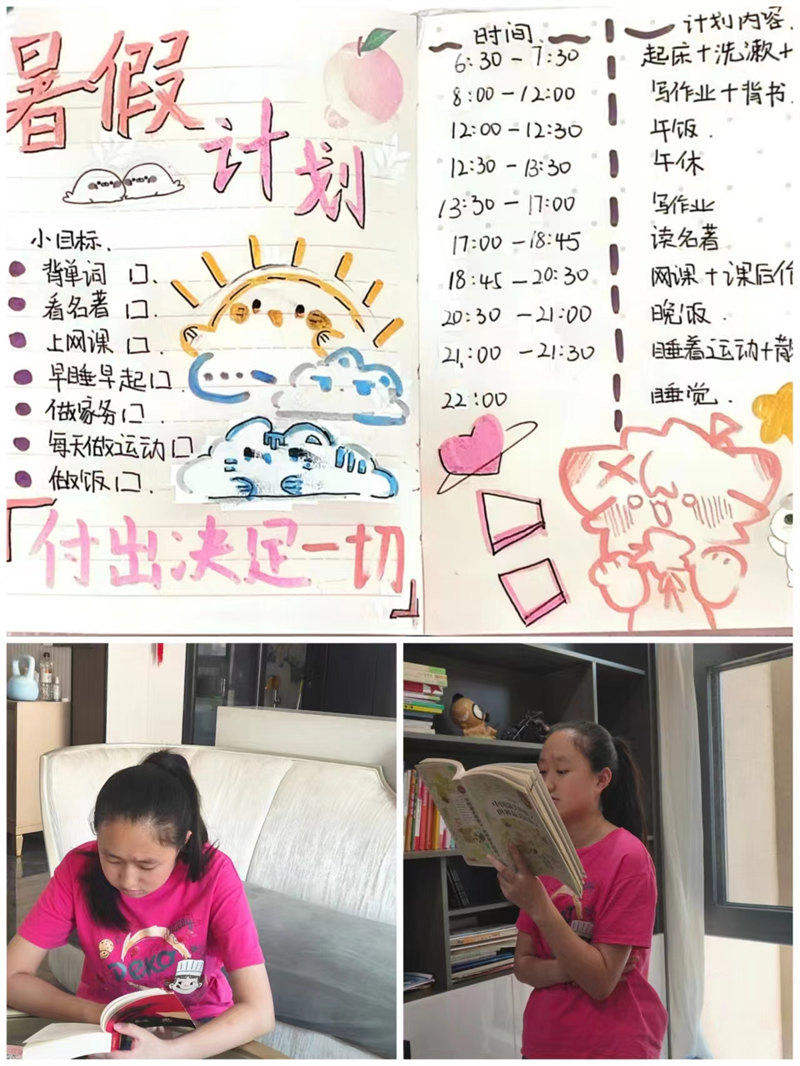 暑假
计划
小目标.
背单词 口.
看名著 口.
上网课 口.
早睡早起口.
做家务口.
每天做运动口
做饭口.
「付出决定一切」
时间. 计划内容.
6:30-7:30 起床+洗漱+
8:00-12:00 写作业+背书
12:00-12:30 午饭.
12:30-13:30 午休
13:30-17:00 写作业
17:00-18:45 读名著
18:45-20:30 网课+课后作
20:30-21:00 晚饭.
21:00-21:30 睡着运动+散
22:00 睡觉.
Peko